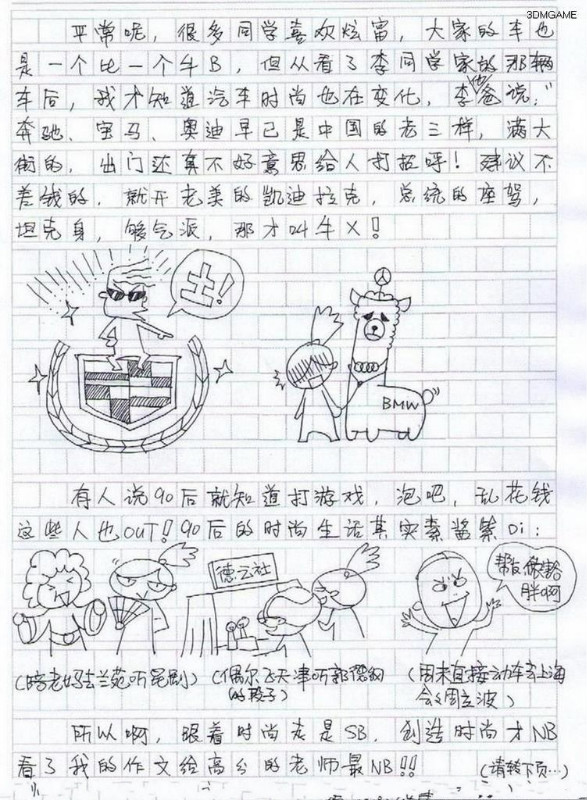 3DMGAME
平常呢，很多同学喜欢炫富，大家的车也
是一个比一个牛B，但从看了李同学家的那辆
车后，我才知道汽车时尚也在变化，李他爸说，"
奔驰、宝马、奥迪早已是中国的老三样，满大
街的，出门还真不好意思给人打招呼！建议不
差钱的，就开老美的凯迪拉克，总统的座驾，
坦克身，够气派，那才叫牛X！
土！
BMW
有人说90后就知道打游戏，泡吧，乱花钱
这些人也OUT！90后的时尚生活其实素酱紫Di：
德云社
(陪老妈去兰苑听昆剧)
(偶尔飞天津听郭德纲
的段子)
(周末直接动车去上海
会会周立波)
胖啊
所以啊，跟着时尚走是SB，创造时尚才NB
看了我的作文给高分的老师最NB!!
(请转下页…)